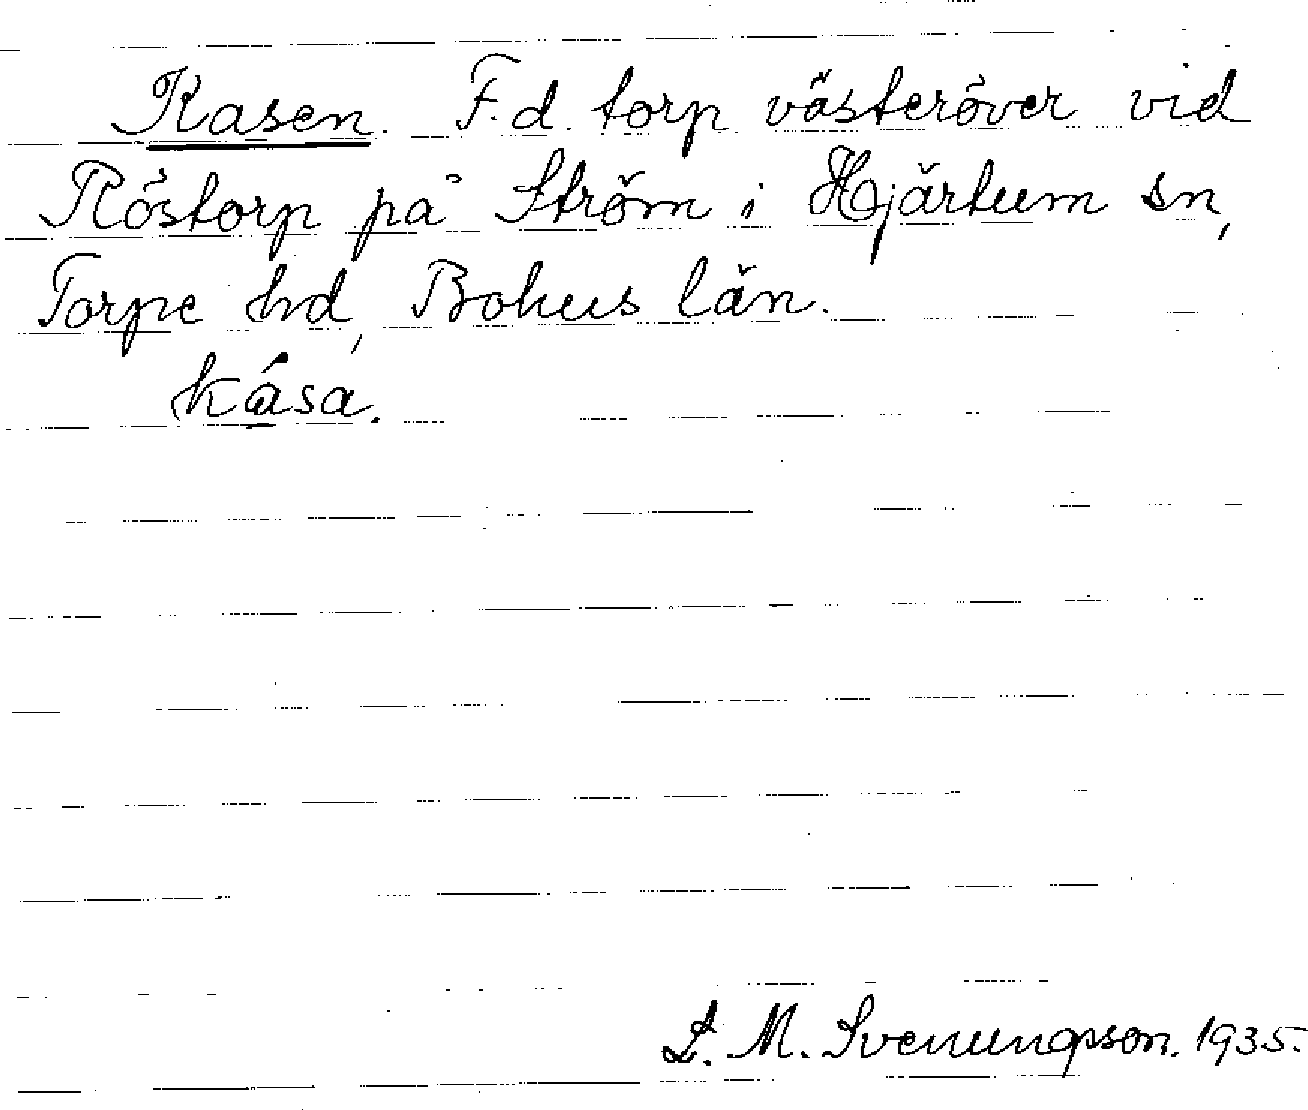 Kasen. F.d. torp västeröver vid
Röstorp på Ström i Hjärtum sn,
Torpe hd, Bohus län.
kása.
L. M. Svenungsson. 1935.